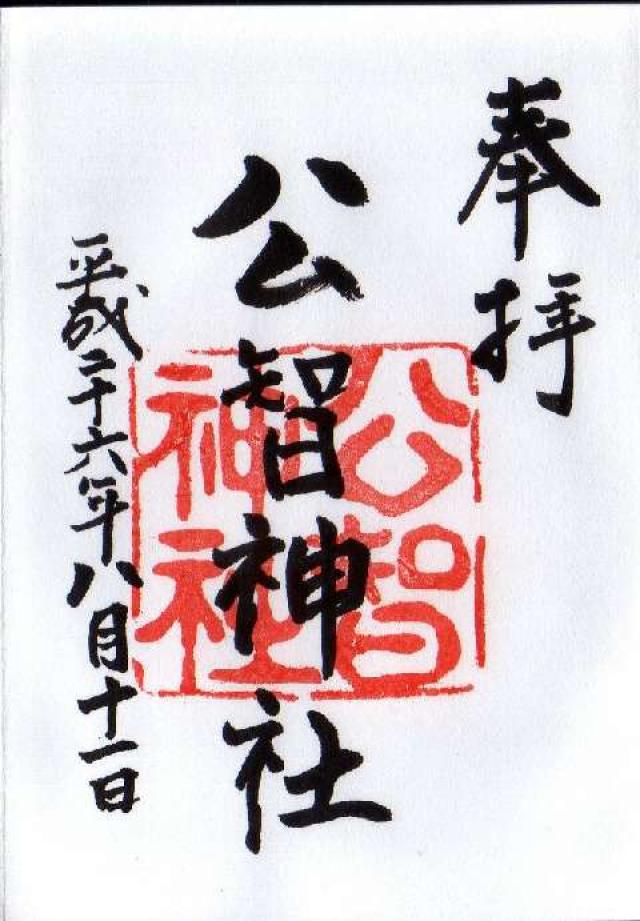 奉拝
公智神社
公智神社
平成二十六年八月十一日